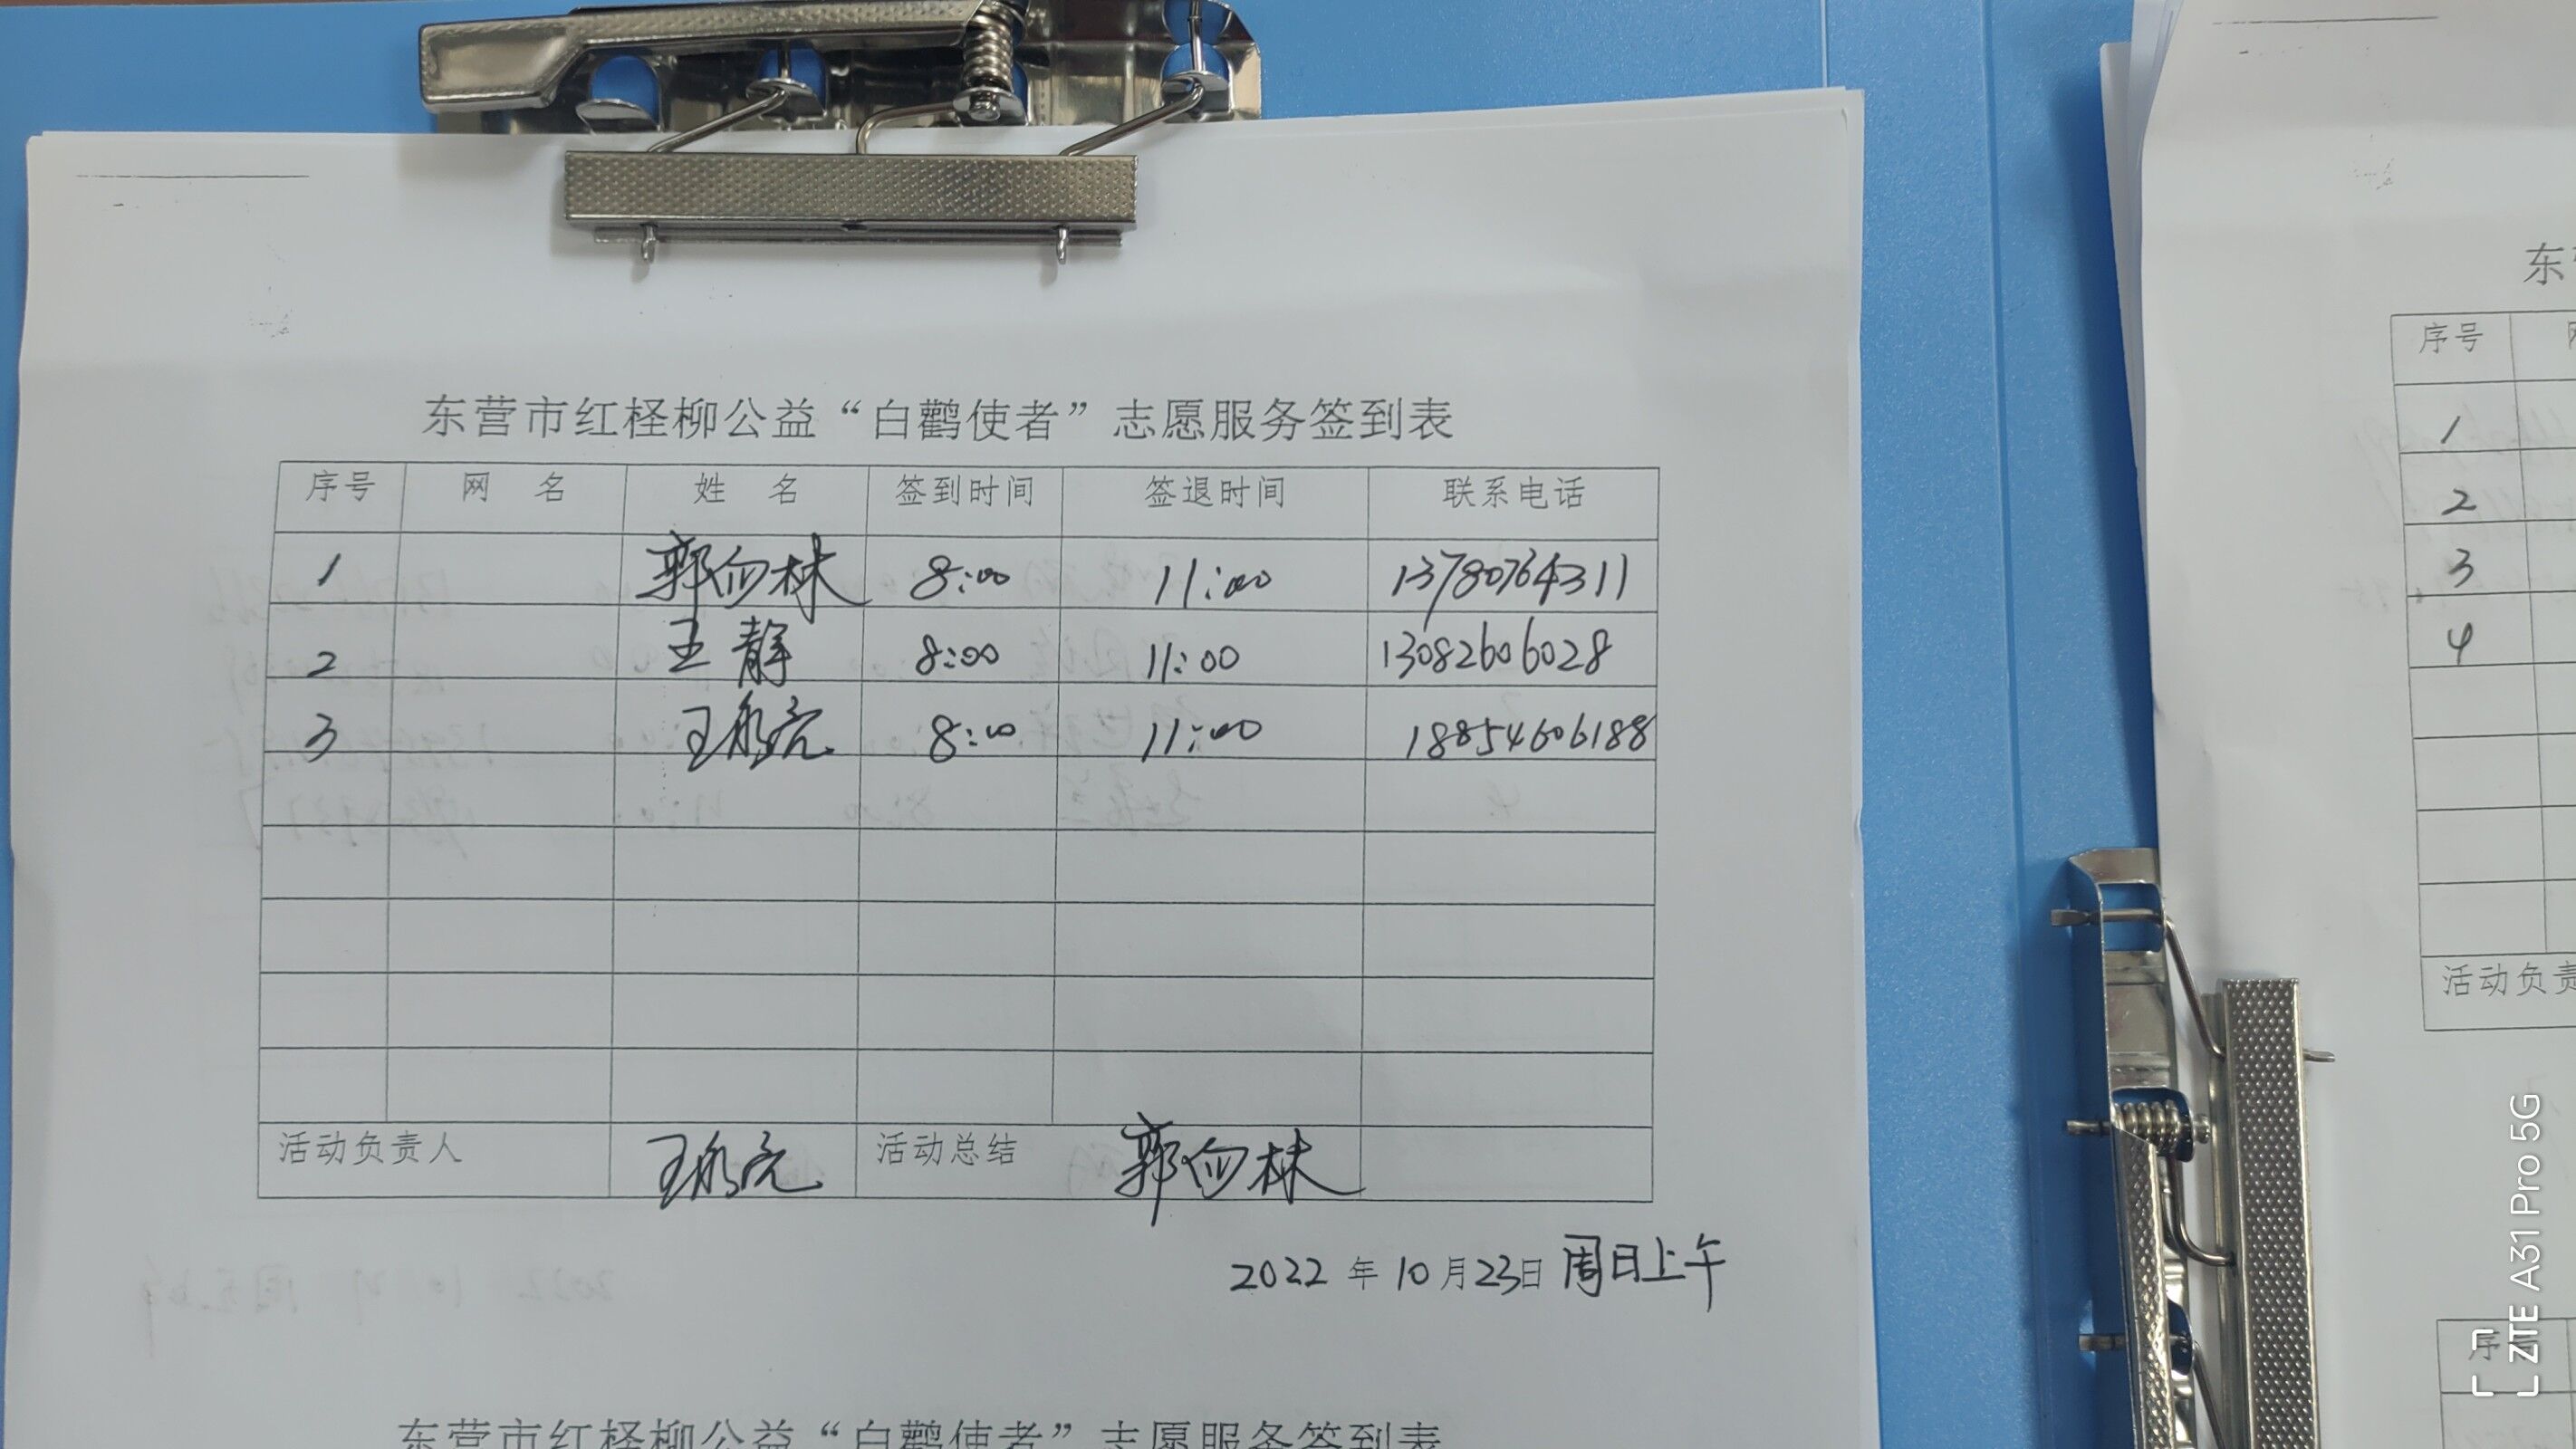 东营市红柽柳公益“白鹳使者”志愿服务签到表
序号 网 名 姓 名 签到时间 签退时间 联系电话
1 郭向林 8:00 11:00 13780764311
2 王静 8:00 11:00 13082606028
3 王永亮 8:00 11:00 18854606188
活动负责人 王永亮 活动总结 郭向林
2022 年 10 月 23 日 周日上午
东营市红柽柳公益“白鹳使者”志愿服务签到表
东
序号
1
2
3
4
活动负责
序号
ZTE A31 Pro 5G